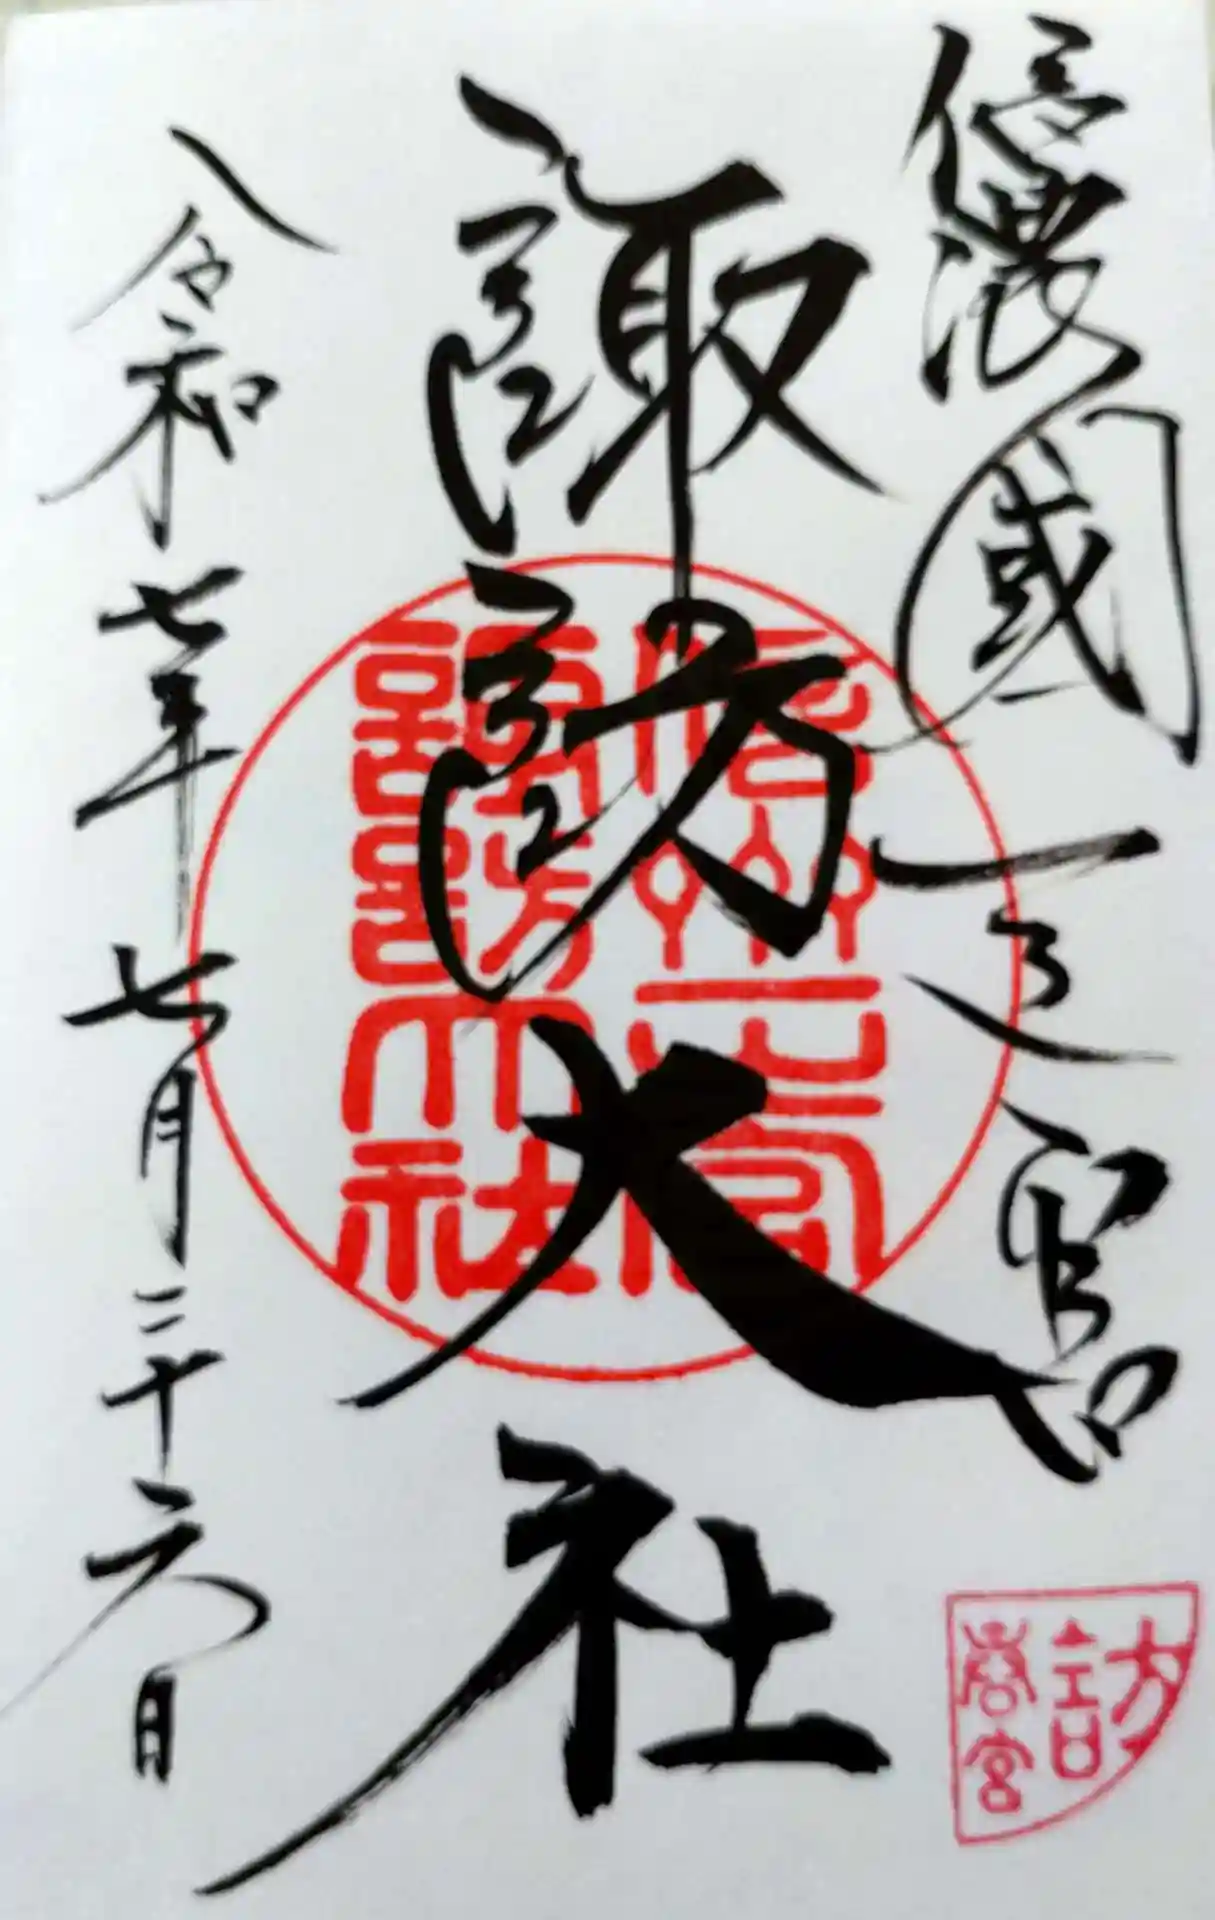 信濃國一之宮
諏訪大社
令和七年七月二十六日
信州一之宮
諏訪大社
訪
春宮